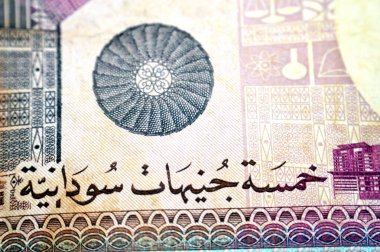 خمسة جنيهات سودانية